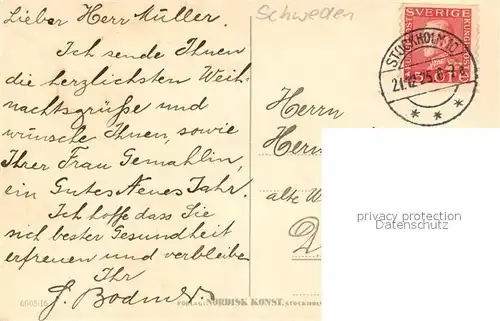 Lieber Herr Müller.
Ich sende Ihnen
die herzlichsten Weih-
nachtsgrüße und
wünsche Ihnen, sowie
Ihrer Frau Gemahlin,
ein Gutes Neues Jahr.
Ich hoffe dass Sie
sich bester Gesundheit
erfreuen und verbleibe
Ihr
Schweden
SVERIGE
STOCKHOLM
21.12.25
Herrn
Herm
alte W
D
privacy protection
Datenschutz
FÖRLAG: NORDISK KONST, STOCKHOLM